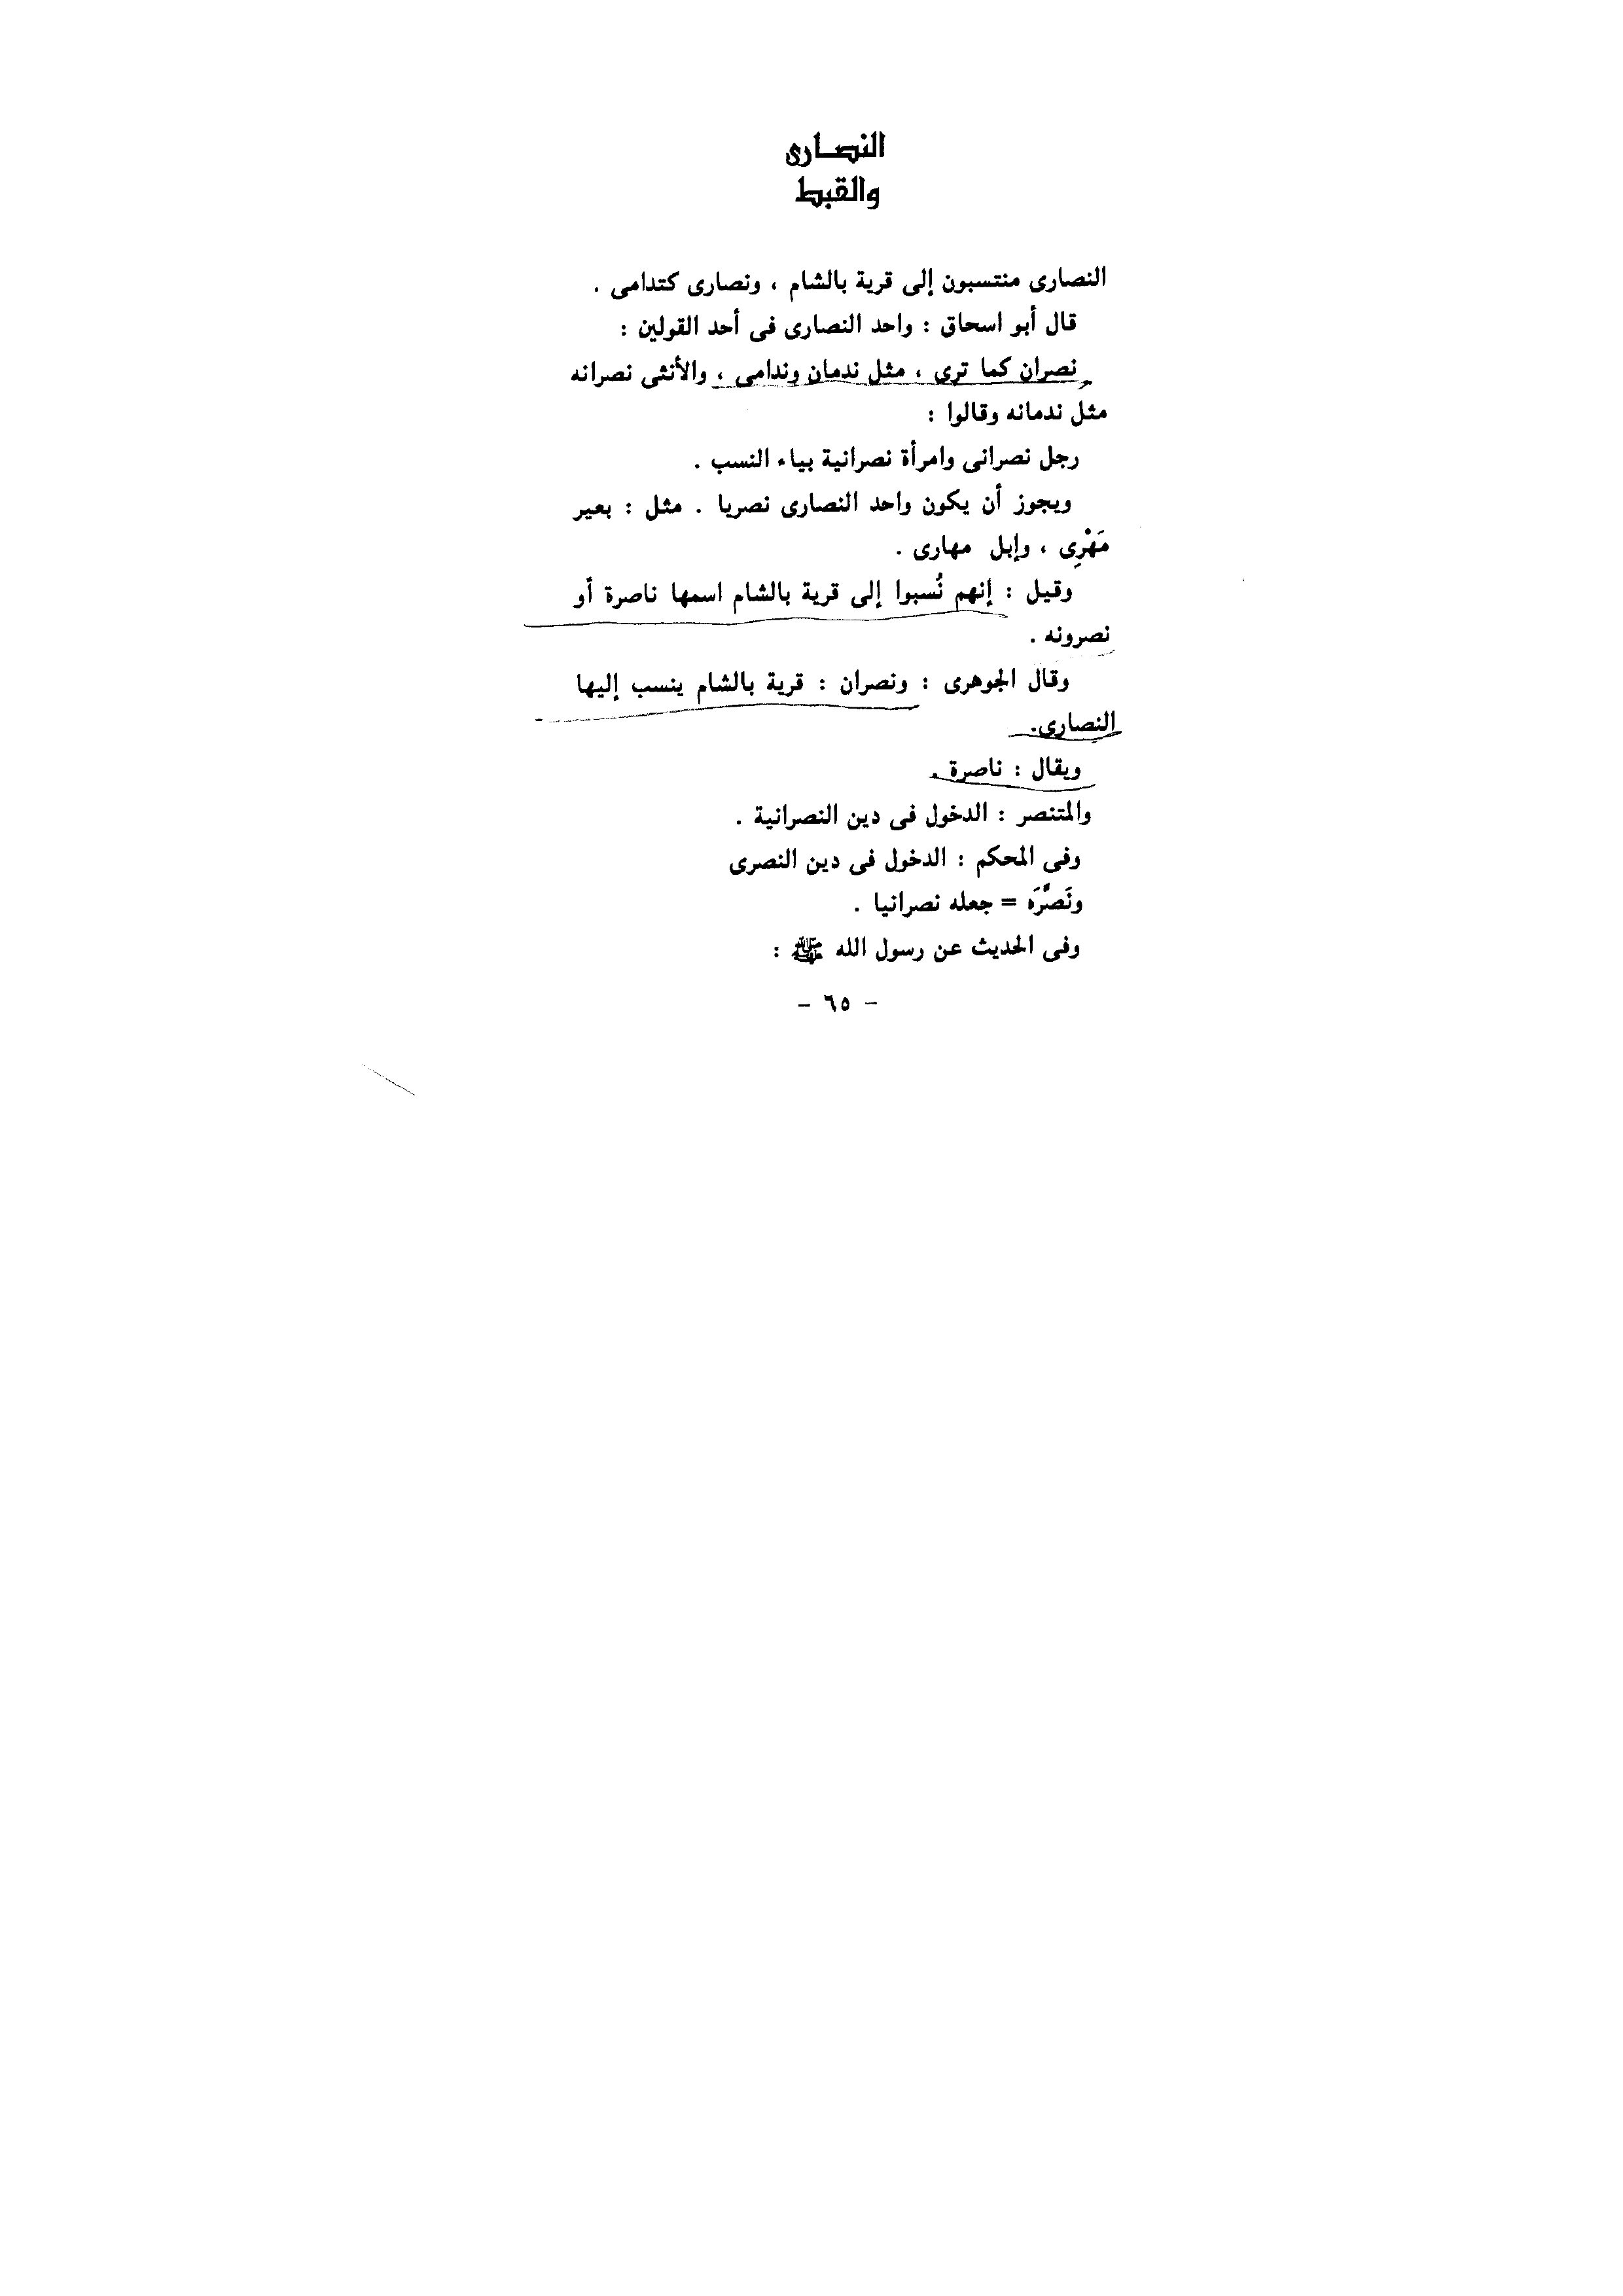 النصارى
والقبط
النصارى منتسبون إلى قرية بالشام ، ونصارى كتدامى .
قال أبو اسحاق : واحد النصارى فى أحد القولين :
نصران كما ترى ، مثل ندمان وندامى ، والأنثى نصرانه
مثل ندمانه وقالوا :
رجل نصرانى وامرأة نصرانية بياء النسب .
ويجوز أن يكون واحد النصارى نصريا . مثل : بعير
مَهْرِى ، وإبل مهارى .
وقيل : إنهم نُسبوا إلى قرية بالشام اسمها ناصرة أو
نصرونه .
وقال الجوهرى : ونصران : قرية بالشام ينسب إليها
النصارى.
ويقال : ناصرة .
والمتنصر : الدخول فى دين النصرانية .
وفى المحكم : الدخول فى دين النصرى
ونَصَّرَه = جعله نصرانيا .
وفى الحديث عن رسول الله ﷺ :
- ٦٥ -